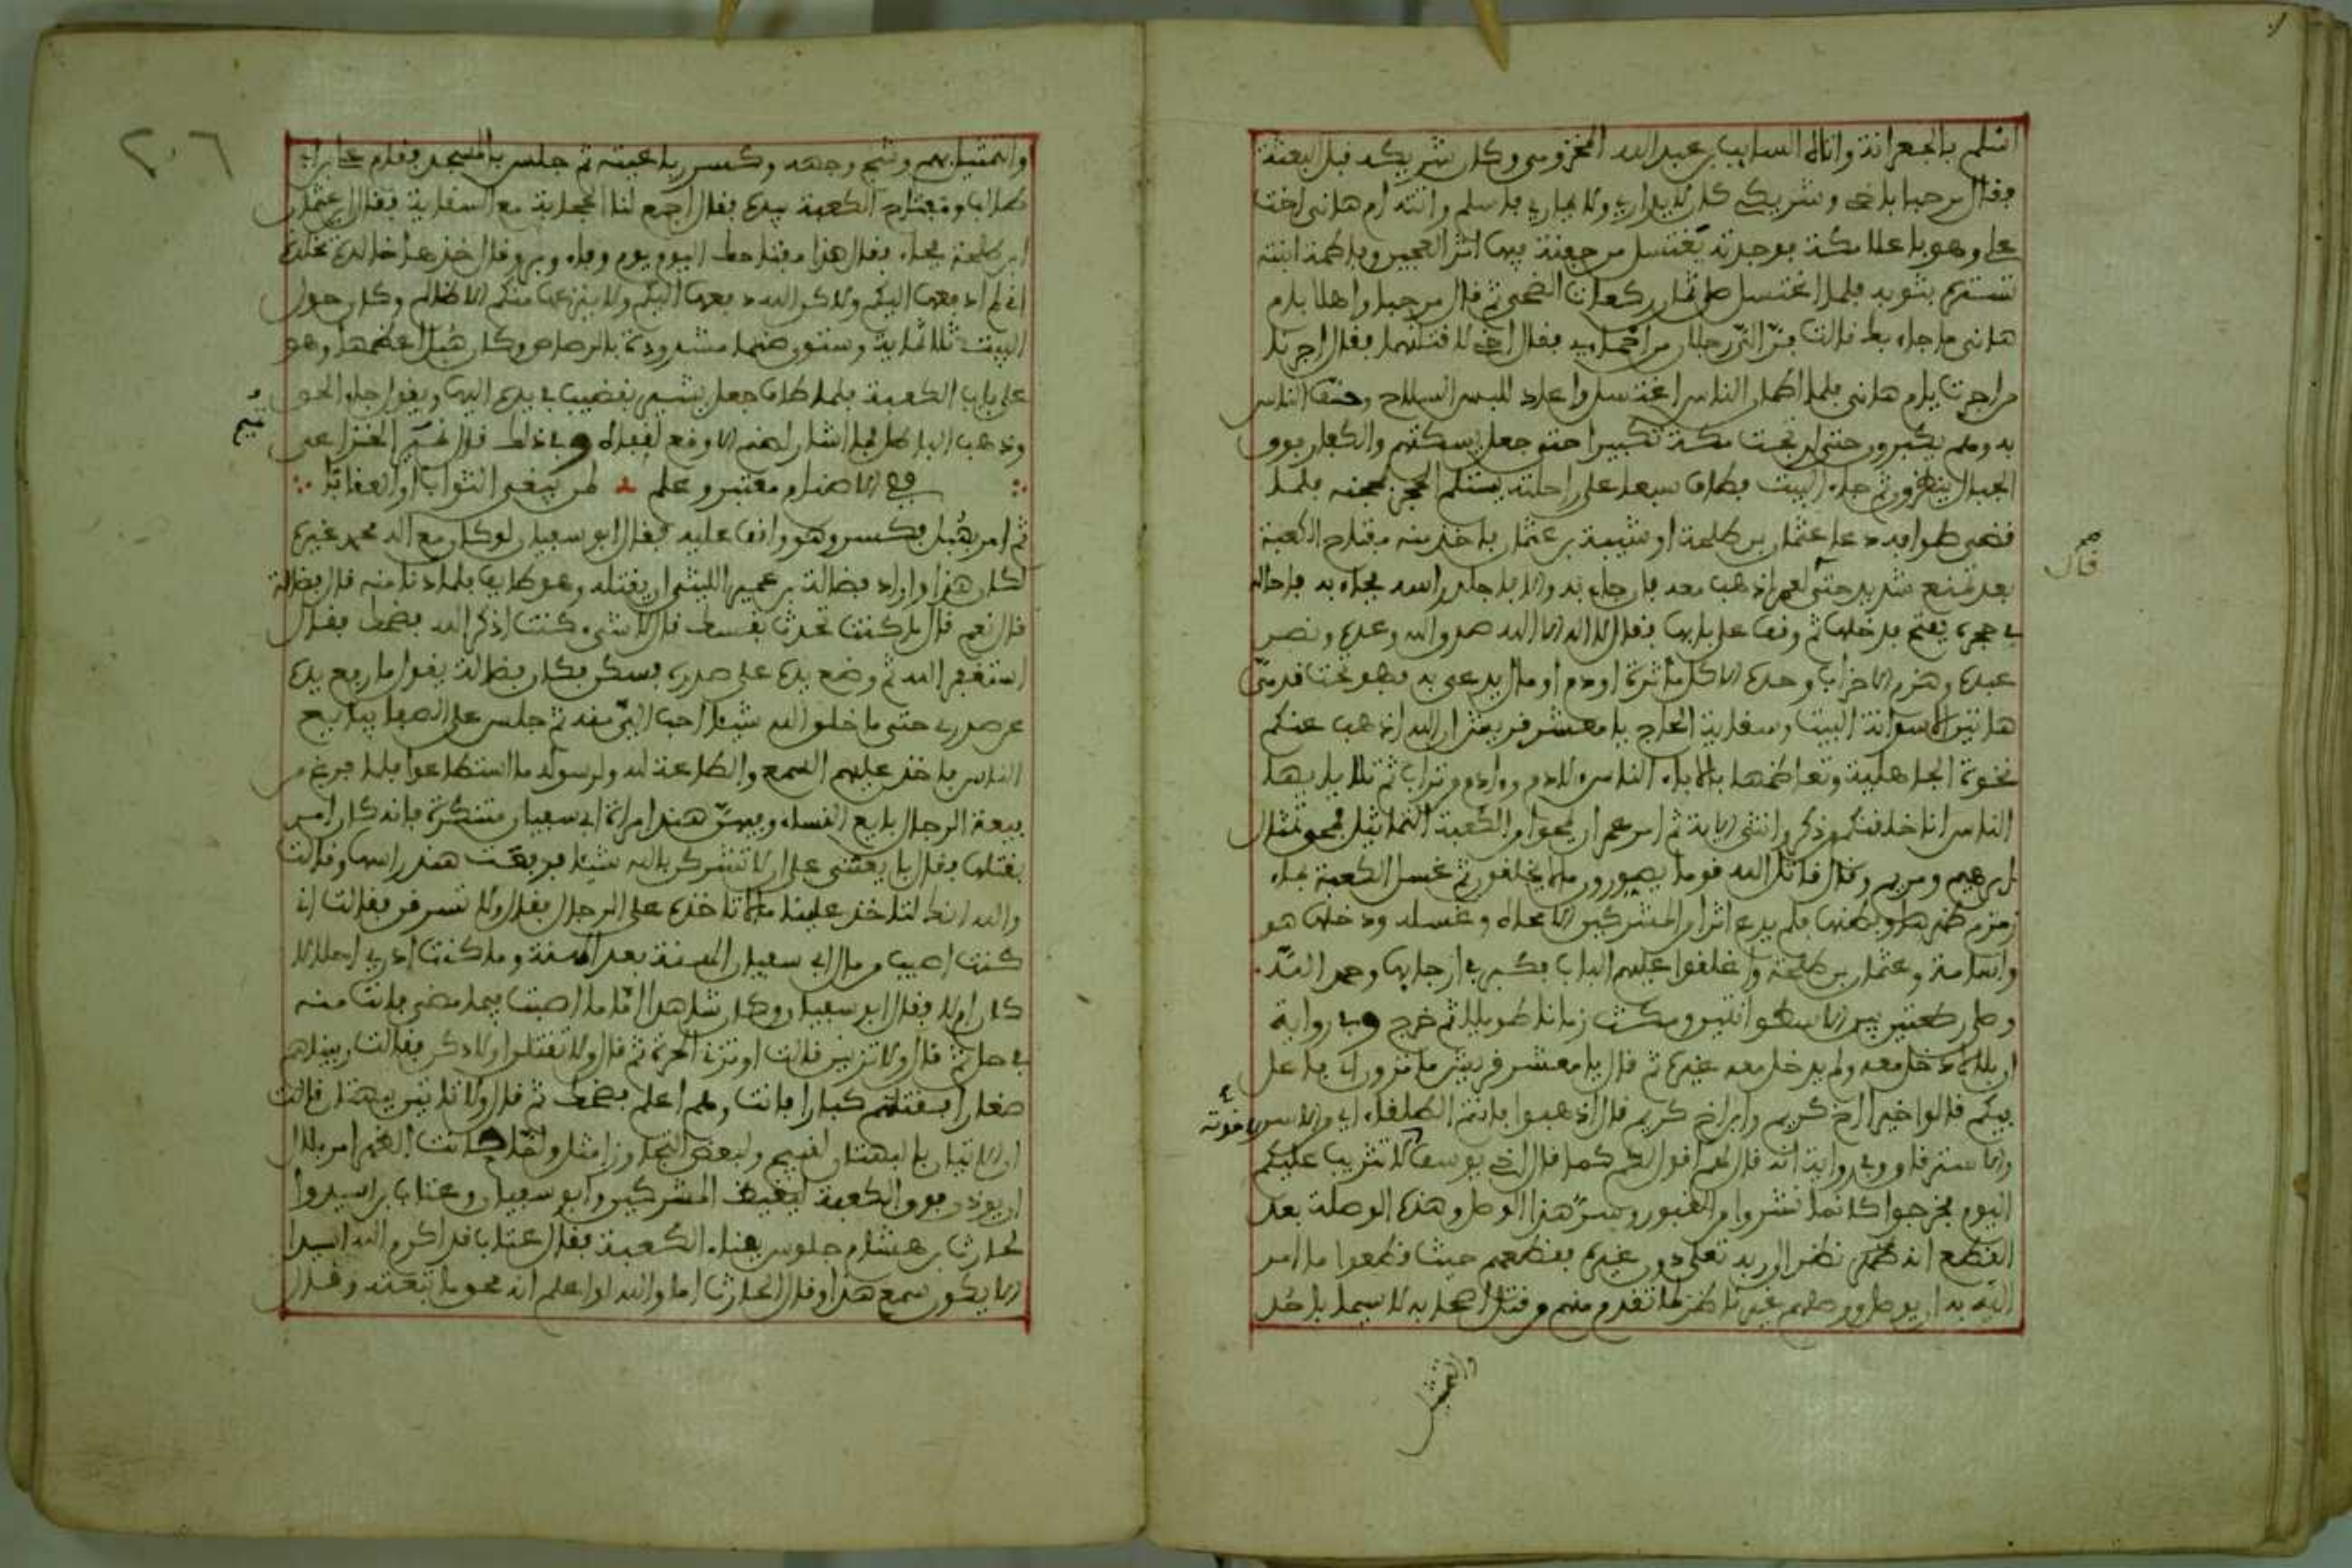 اسلم بالجعرانة واتاه السايب بن عبد الله المخزومي وكان شريكه قبل البعثة
فقال مرحبا باخي وشريكي كان لا يداري ولا يماري فاسلم واتته ام هانئ اخت
علي وهو باعلا مكة فوجدته يغتسل من جفنة فيها اثر العجين وفاطمة ابنته
تستره بثوبه فلما اغتسل صلى ثمان ركعات الضحى ثم قال مرحبا واهلا بام
هانئ ما جاء بك قالت فر الي رجلان من احمايي فقال اخي لاقتلنهما فقال اجرنا
من اجرت يا ام هانئ فلما اطمان الناس اغتسل واعاد للبس السلاح وحف الناس
به وهم يكبرون حتى ارتجت مكة تكبيرا حتى جعل يسكتهم والكفار فوق
الجبال ينظرون ثم جاء البيت فطاف سبعا على راحلته يستلم الحجر بمحجنه فلما
قضى طوافه دعا عثمان بن طلحة او شيبة بن عثمان فاخذ منه مفتاح الكعبة
بعد تمنع شديد حتى لعمر اذهب معه فان جاء به والا فاجلد راسه فجاء به فاحاله
في حجره ففتح فدخلها ثم وقف على بابها فقال لا اله الا الله صدق الله وعده ونصر
عبده وهزم الاحزاب وحده الا كل ماثرة او دم او مال يدعى به فهو تحت قدمي
هاتين الا سدانة البيت وسقاية الحاج يا معشر قريش ان الله اذهب عنكم
نخوة الجاهلية وتعاظمها بالاباء الناس لادم وادم من تراب ثم تلا يا ايها
الناس انا خلقنكم من ذكر وانثى الاية ثم امر عمر ان يمحوا من الكعبة التماثيل فمحى تمثال
ابرهيم ومريم وقال قاتل الله قوما يصورون ما لا يخلقون ثم غسل الكعبة بماء
زمزم ظهرها وبطنها فلم يدع اثرا من المشركين الا محاه وغسله ودخلها هو
واسامة وعثمان بن طلحة واغلقوا عليهم الباب فكبر في ارجايها وحمد الله
وصلى ركعتين بين الاسطوانتين ومكث زمانا طويلا ثم خرج وفي رواية
ان بلالا دخل معه ولم يدخل معه غيره ثم قال يا معشر قريش ما ترون اني فاعل
فيكم قالوا خيرا اخ كريم وابن اخ كريم قال اذهبوا فانتم الطلقاء اي من الاسر
والاسترقاق وفي رواية انه قال لهم اقول لكم كما قال اخي يوسف لا تثريب عليكم
اليوم فخرجوا كانما نشروا من القبور وسر هذا الوصل وهذه الوصلة بعد
القطع انه نظر الى ربه تعلى دون غيره فقطعهم حيث قطعوا ما امر
الله به ان يوصل ووصلهم غير ناظر لما تقدم منهم من قتل اصحابه لا سيما باحد
قال
والتمثيل
والتمثيل بهم وشج وجهه وكسر رباعيته ثم جلس بالمسجد فقام علي بن ابي
طالب ومفتاح الكعبة بيده فقال اجمع لنا الحجابة مع السقاية فقال اين عثمان
ابن طلحة فجاء فقال هذا مفتاحك اليوم يوم وفاء وبر وقال خذها خالدة تالدة
اني لم ادفعها اليكم ولاكن الله دفعها اليكم ولا ينزعها منكم الا ظالم وكان حول
البيت ثلاثماية وستون صنما مشدودة بالرصاص وكان هبل اعظمها وهو
على باب الكعبة فلما طاف جعل يشير بقضيب في يده اليها ويقول جاء الحق
وذهب الباطل فما اشار لصنم الا وقع لقفاه وفي ذلك قال تميم الخزاعي
وفي الاصنام معتبر وعلم لمن يبغي الثواب او العقابا
ثم امر بهبل فكسر وهو واقف عليه فقال ابو سفيان لو كان مع اله محمد غيره
لكان هذا واراد فضالة بن عمير الليثي ان يقتله وهو طايف فلما دنا منه قال فضالة
قال نعم قال ما كنت تحدث نفسك قال لا شيء كنت اذكر الله فضحك فقال
استغفر الله ثم وضع يده على صدره فسكن فكان فضالة يقول ما رفع يده
عن صدري حتى ما خلق الله شيئا احب الي منه ثم جلس على الصفا يبايع
الناس فاخذ عليهم السمع والطاعة لله ولرسوله ما استطاعوا فلما فرغ من
بيعة الرجال بايع النساء وفيهن هند امراة ابي سفيان متنكرة فانه كان امر
بقتلها فقال بايعنني على ان لا تشركن بالله شيئا فرفعت هند راسها وقالت
والله انك لتاخذ علينا ما لا تاخذه على الرجال فقال ولا تسرقن فقالت اني
كنت اصيب من مال ابي سفيان الهنة بعد الهنة وما كنت ادري احلالا
كان ام لا فقال ابو سفيان وكان شاهدا اما ما اصبت فيما مضى فانت منه
في حل ثم قال ولا تزنين قالت اوتزني الحرة ثم قال ولا تقتلن اولادكن فقالت ربيناهم
صغارا فقتلتهم كبارا فانت وهم اعلم فضحك ثم قال ولا تاتين ببهتان قالت
ان الاتيان بالبهتان لقبيح ولبعض التجاوز امثل ولما كانت الظهر امر بلالا
ان يوذن فوق الكعبة ليغيظ المشركين وابو سفيان وعتاب بن اسيد وا
لحارث بن هشام جلوس بفناء الكعبة فقال عتاب قد اكرم الله اسيدا
الا يكون سمع هذا وقال الحارث اما والله لو اعلم انه محق ما تبعته وقال
٢٠٦